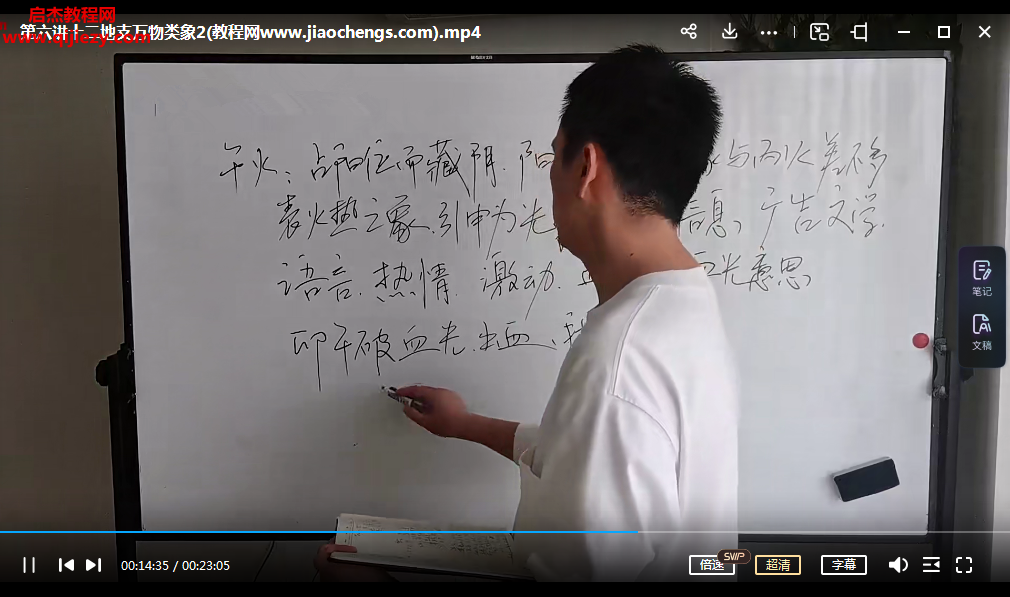 启杰教程网
www.qijiezy.com
第六讲十二地支万物类象2(教程网www.jiaochengs.com).mp4
午火：占阳位而藏阴.阳 与丙火差不多
表火热之象.引申为光 信息、广告文学.
语言.热情.激动. 血光意思
卯午破血光.出血、
笔记
文稿
00:14:35 / 00:23:05
倍速
SWP
超清
字幕